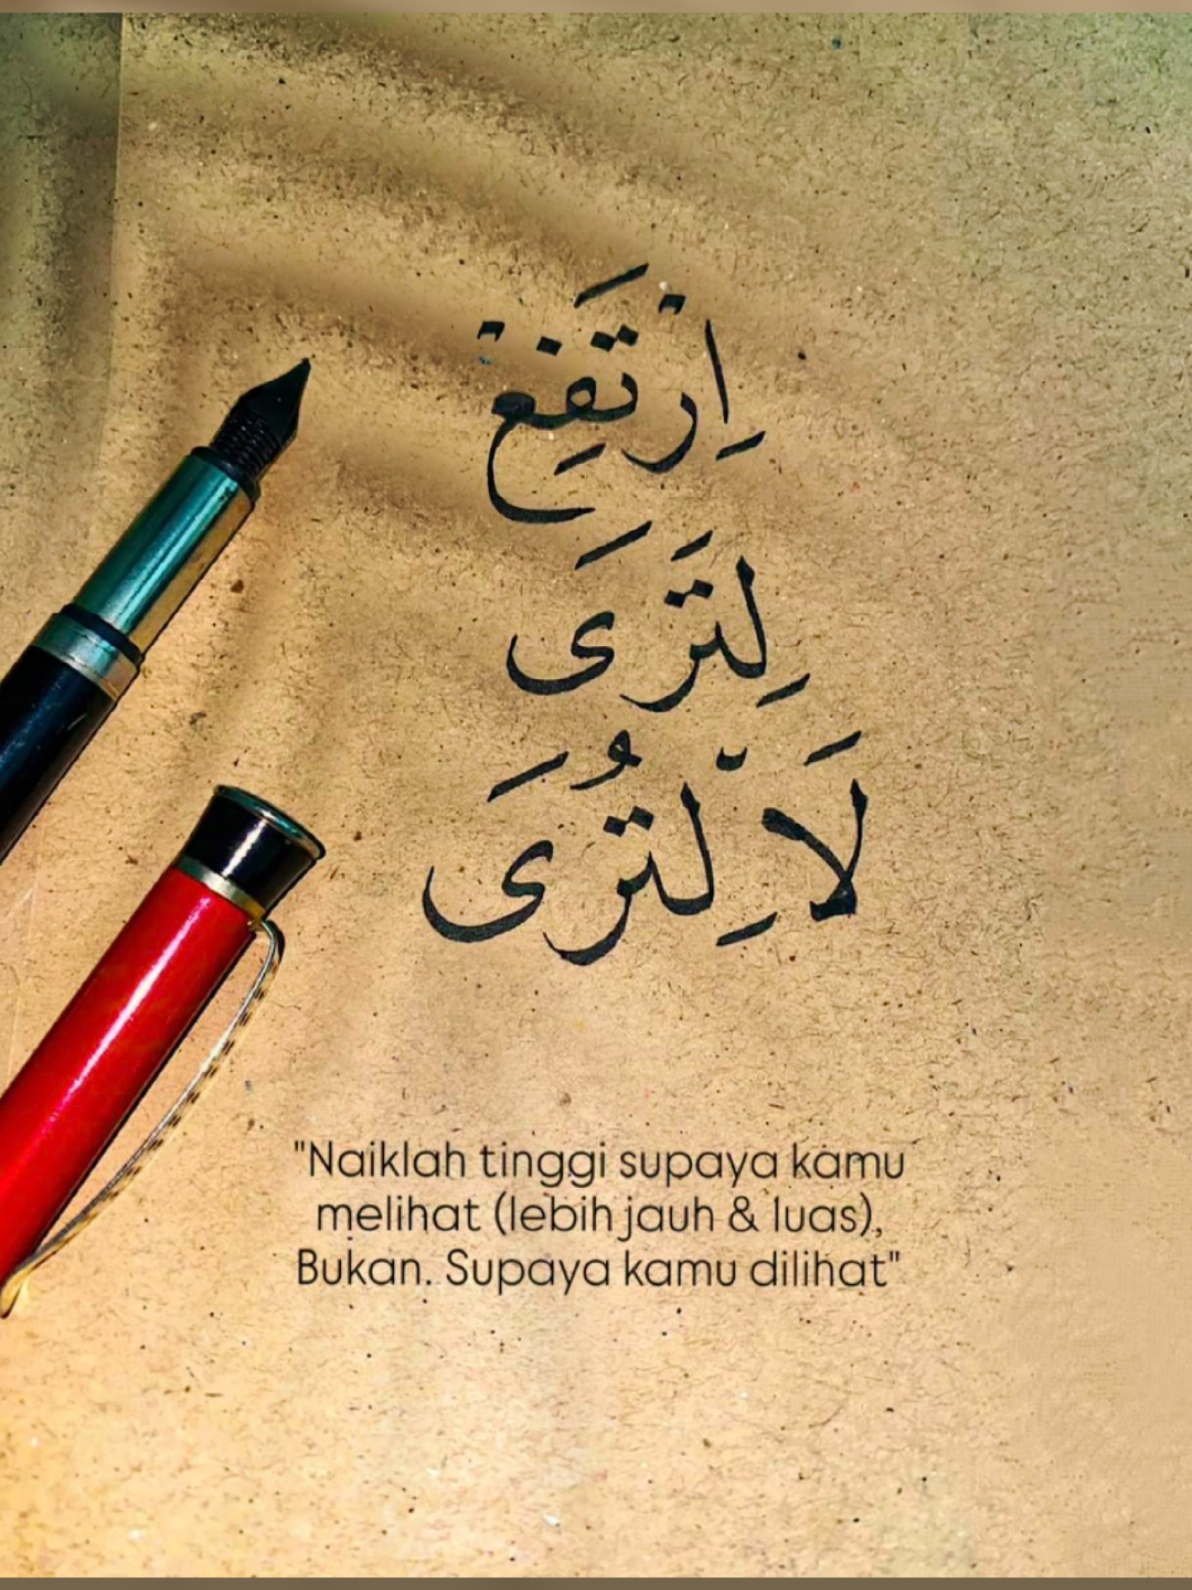 اِرْتَفِعْ
لِتَرَى
لَا لِتُرَى
"Naiklah tinggi supaya kamu
melihat (lebih jauh & luas),
Bukan. Supaya kamu dilihat"